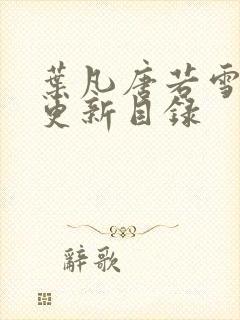 葉凡唐若雪
更新目錄
辭歌